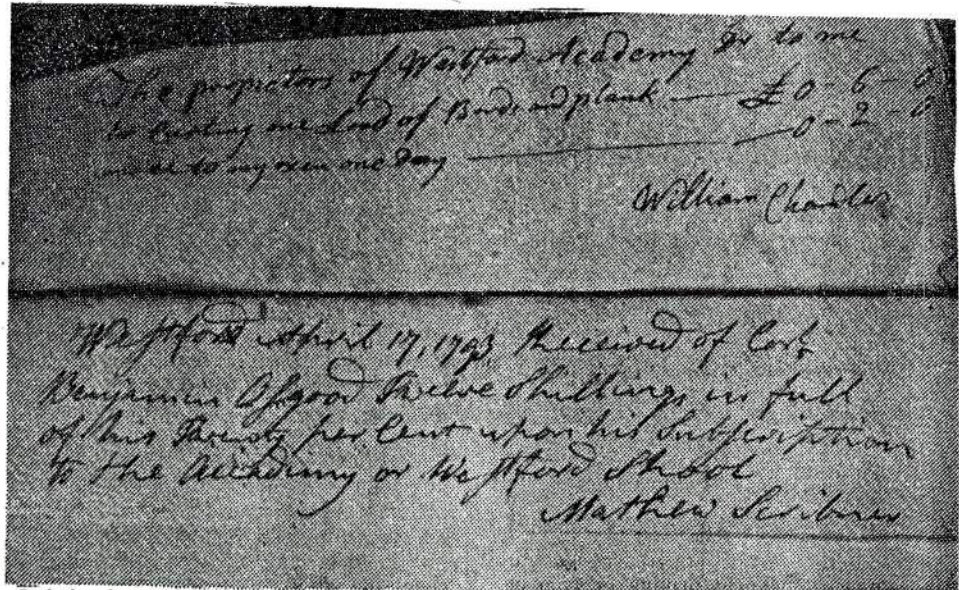 The propietors of Westford Academy Dr to me
to Carting one Load of Bords and plank — £0-6-0
to my oxen one Day — 0-2-0
William Chandler
Westford April 17, 1793 Received of
Benjamin Osgood Twelve Shillings in full
of his Twenty per Cent upon his Subscription
to the Accademy or Westford School
Mathew Scribner